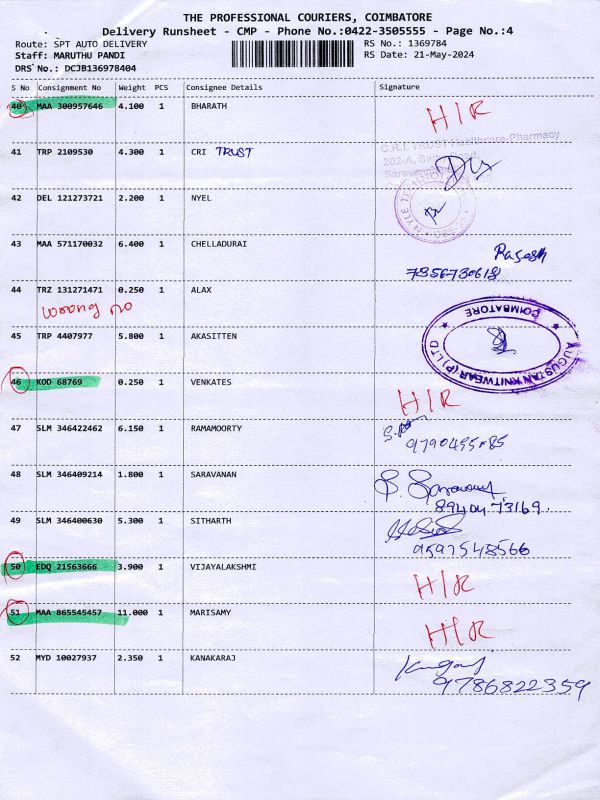 THE PROFESSIONAL COURIERS, COIMBATORE
Delivery Runsheet - CMP - Phone No.:0422-3505555 - Page No.:4
Route: SPT AUTO DELIVERY RS No.: 1369784
Staff: MARUTHU PANDI RS Date: 21-May-2024
DRS No.: DCJB136978404
S No Consignment No Weight PCS Consignee Details Signature
40 MAA 300957646 4.100 1 BHARATH H/R
C.R.I. TRUST Healthcare-Pharmacy
41 TRP 2109530 4.300 1 CRI TRUST
202-A,
42 DEL 121273721 2.200 1 NYEL
43 MAA 571170032 6.400 1 CHELLADURAI
7356730618
44 TRZ 131271471 0.250 1 ALAX
wrong no
COIMBATORE
45 TRP 4407977 5.800 1 AKASITTEN
AUGUSTAN KNITWEAR (P) LTD
46 KOD 68769 0.250 1 VENKATES H/R
47 SLM 346422462 6.150 1 RAMAMOORTY
48 SLM 346409214 1.800 1 SARAVANAN
49 SLM 346400630 5.300 1 SITHARTH
9597548566
50 EDQ 21563666 3.900 1 VIJAYALAKSHMI H/R
51 MAA 865545457 11.000 1 MARISAMY H/R
52 MYD 10027937 2.350 1 KANAKARAJ
9786822359